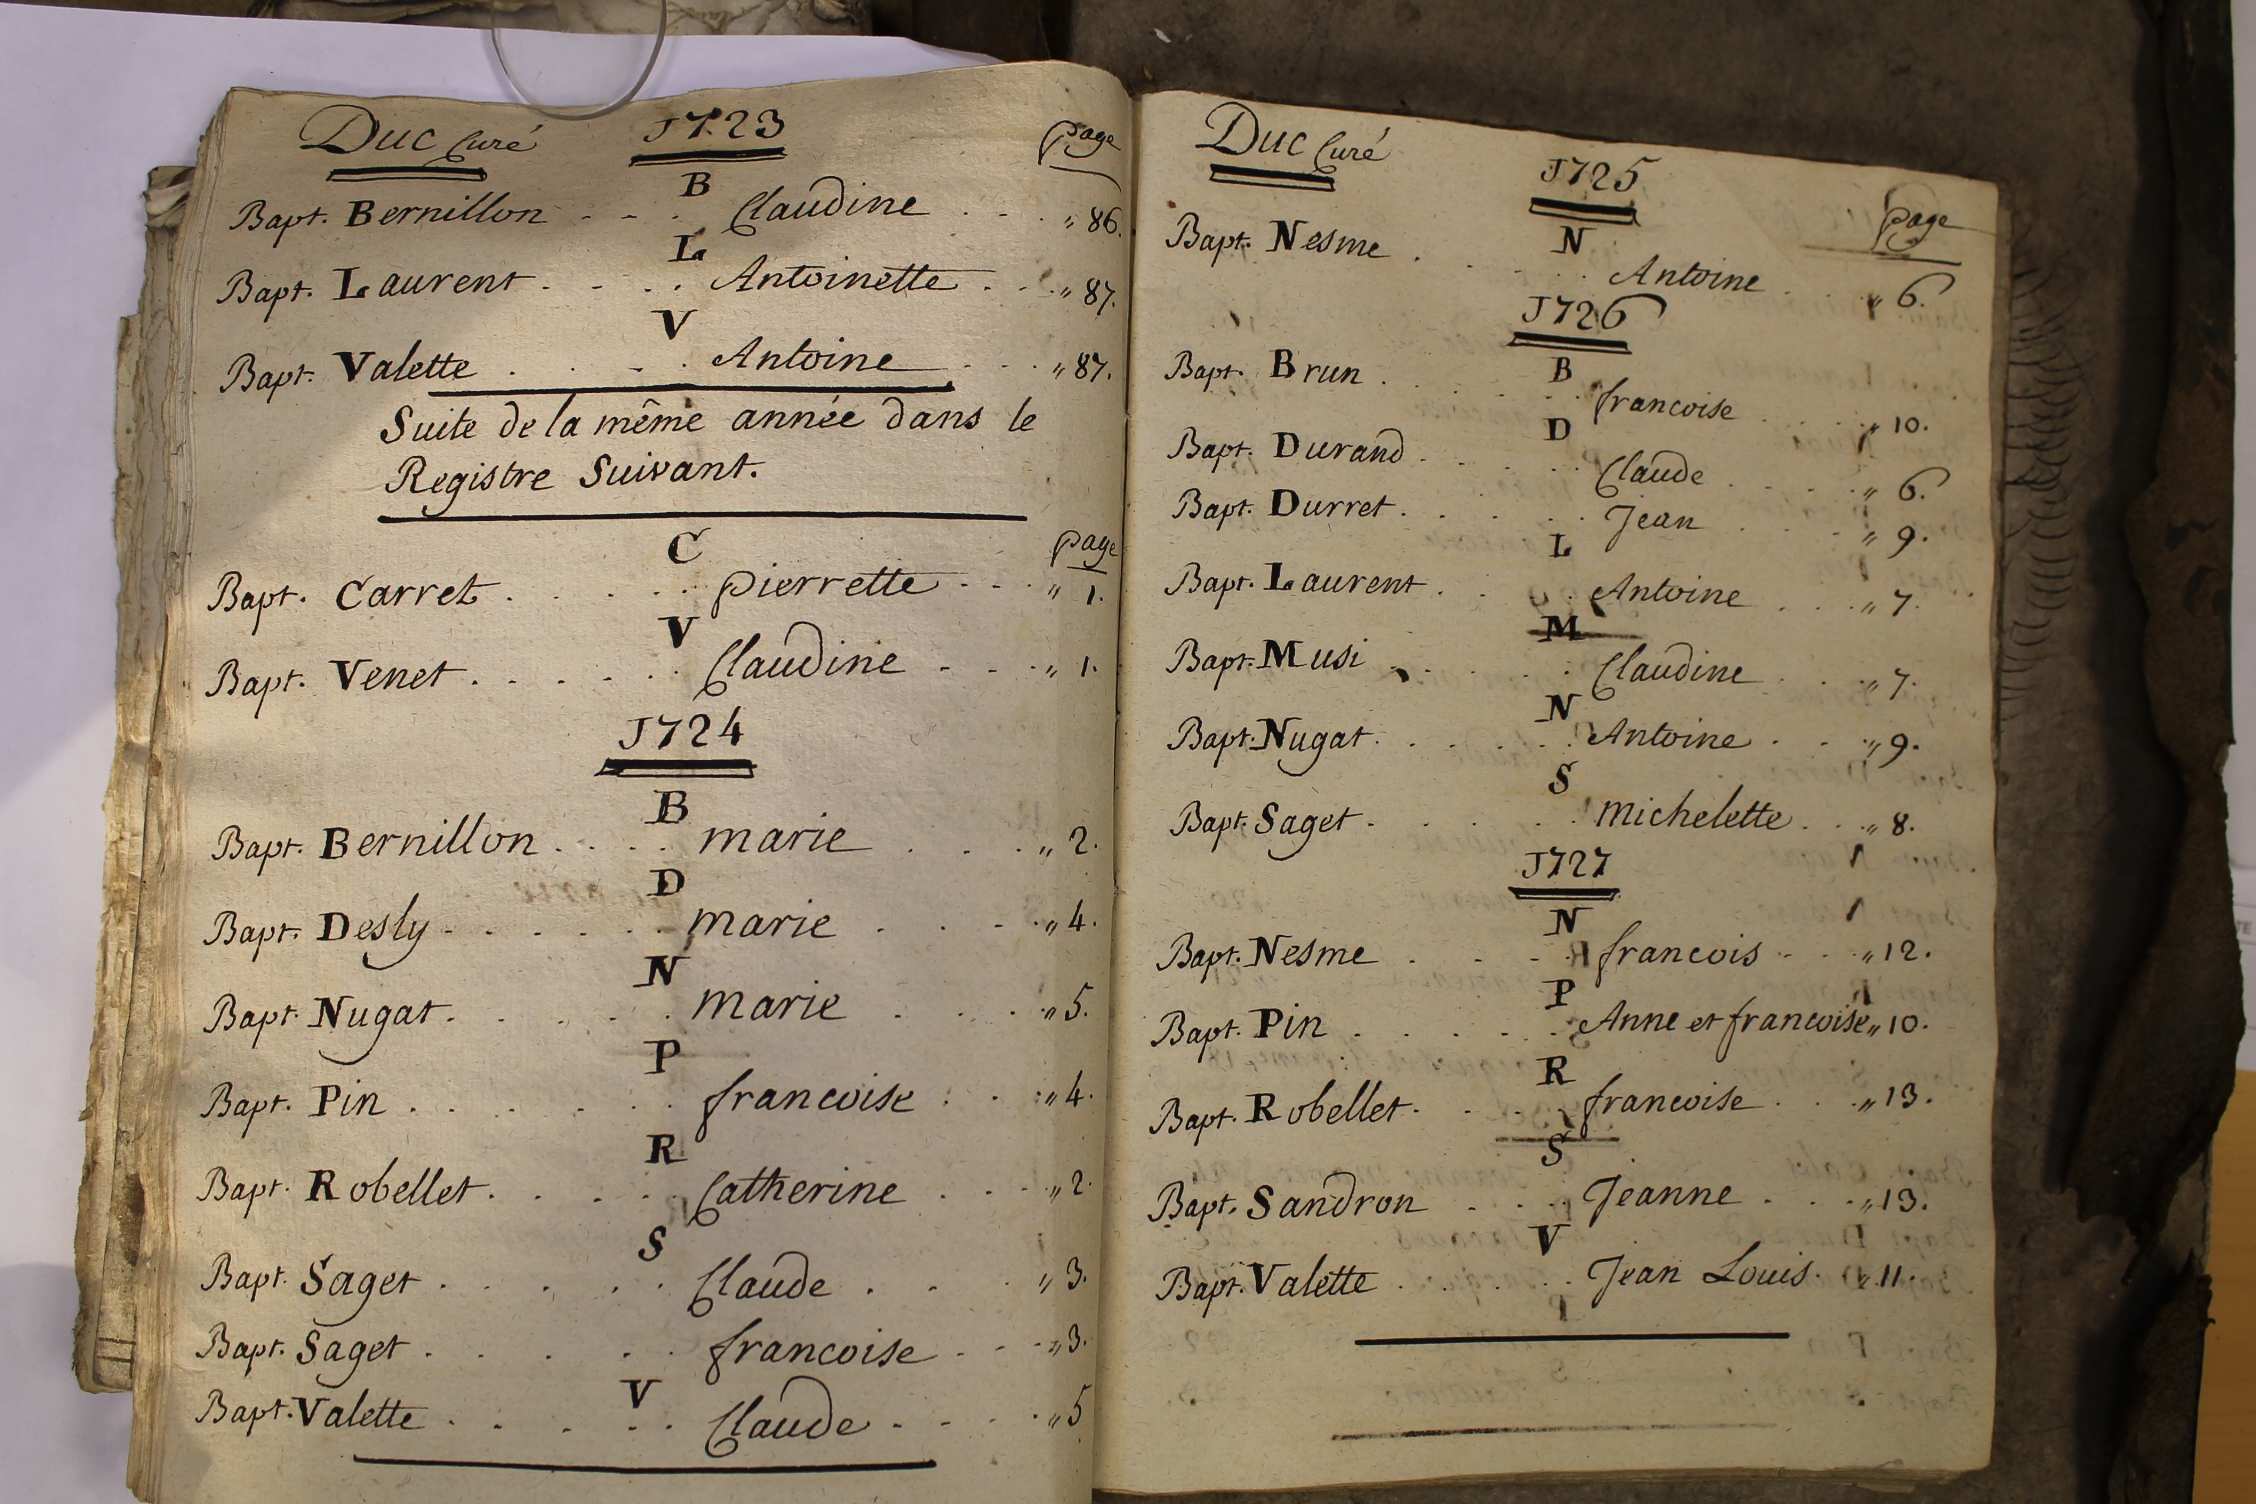 Duc Curé 1723 page
B
Bapt. Bernillon . . . Claudine . . . " 86.
L
Bapt. Laurent . . . . Antoinette . . . " 87.
V
Bapt. Valette . . . . Antoine . . . " 87.
Suite de la même année dans le
Registre Suivant.
C page
Bapt. Carret . . . . . pierrette . . . " 1.
V
Bapt. Venet . . . . . . Claudine . . . " 1.
1724
B
Bapt. Bernillon . . . . marie . . . " 2.
D
Bapt. Desly . . . . . . marie . . . . " 4.
N
Bapt. Nugat . . . . . marie . . . . " 5.
P
Bapt. Pin . . . . . . francoise . . . " 4.
R
Bapt. Robellet . . . . . Catherine . . . " 2.
S
Bapt. Saget . . . . . Claude . . . . " 3.
Bapt. Saget . . . . . francoise . . . " 3.
V
Bapt. Valette . . . . . Claude . . . . " 5
Duc Curé
1725
page
N
Bapt. Nesme . . . . . Antoine . . . " 6.
1726
B
Bapt. Brun . . . . . francoise . . . . " 10.
D
Bapt. Durand . . . . . Claude . . . . " 6.
Bapt. Durret . . . . . Jean . . . . " 9.
L
Bapt. Laurent . . . . Antoine . . . . " 7.
M
Bapt. Musi . . . . . Claudine . . . " 7.
N
Bapt. Nugat . . . . . Antoine . . . " 9.
S
Bapt. Saget . . . . . michelette . . . " 8.
1727
N
Bapt. Nesme . . . . francois . . . " 12.
P
Bapt. Pin . . . . . . Anne et francoise " 10.
R
Bapt. Robellet . . . . francoise . . . " 13.
S
Bapt. Sandron . . . . Jeanne . . . . " 13.
V
Bapt. Valette . . . . . Jean Louis . " 11.